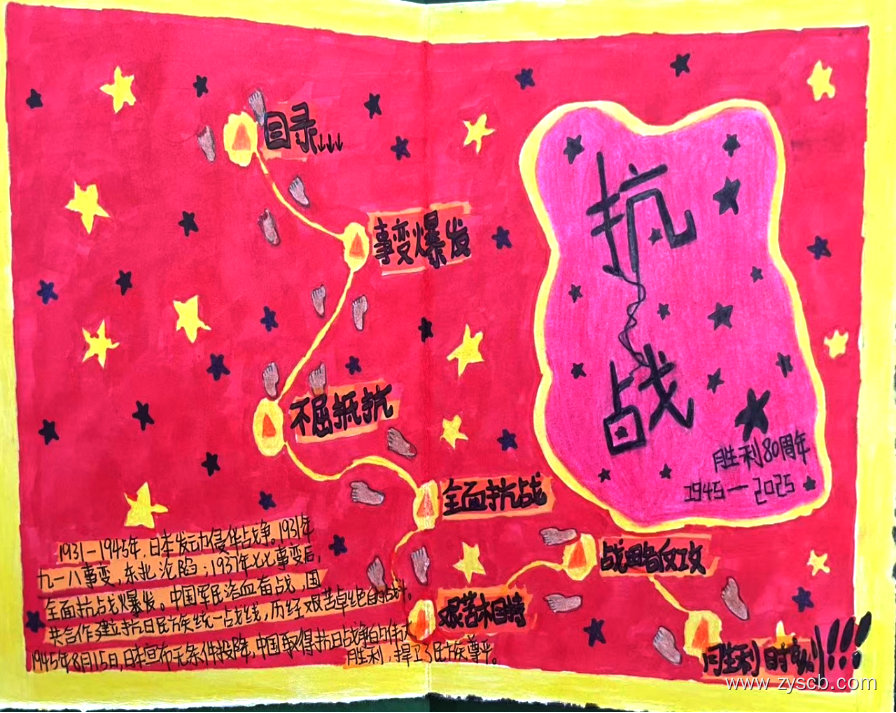 目录↓↓↓
事变爆发
不屈抵抗
全面抗战
艰苦相持
战略反攻
胜利时刻!!!
抗
战
胜利80周年
1945—2025
1931—1945年,日本发动侵华战争。1931年
九一八事变,东北沦陷;1937年七七事变后,
全面抗战爆发。中国军民浴血奋战,国
共合作建立抗日民族统一战线,历经艰苦卓绝的战斗。
1945年8月15日,日本宣布无条件投降,中国取得抗日战争的伟大
胜利,捍卫了民族尊严。
www.zyscb.com